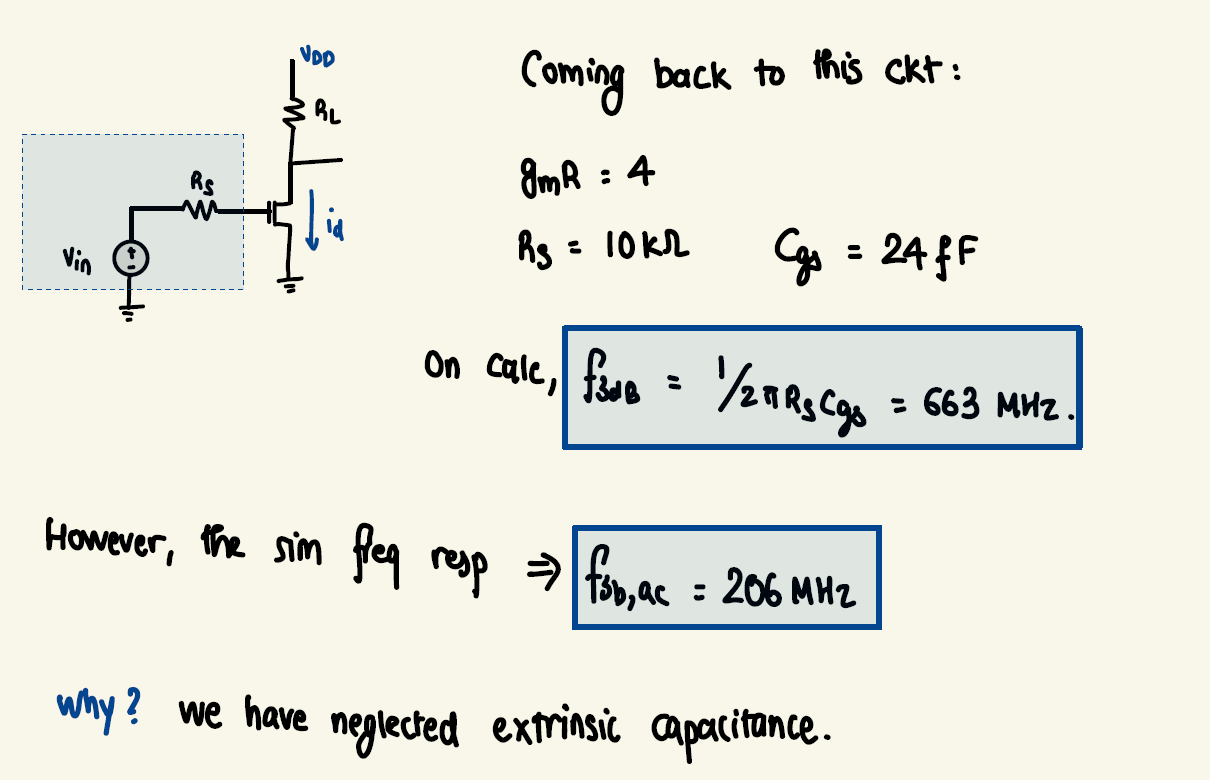 VDD
RL
Rs
id
Vin
Coming back to this ckt:
gmR = 4
Rs = 10kΩ Cgs = 24fF
On calc, f3dB = 1/2πRsCgs = 663 MHz.
However, the sim freq resp ⇒ f3b,ac = 206 MHz
Why? we have neglected extrinsic capacitance.